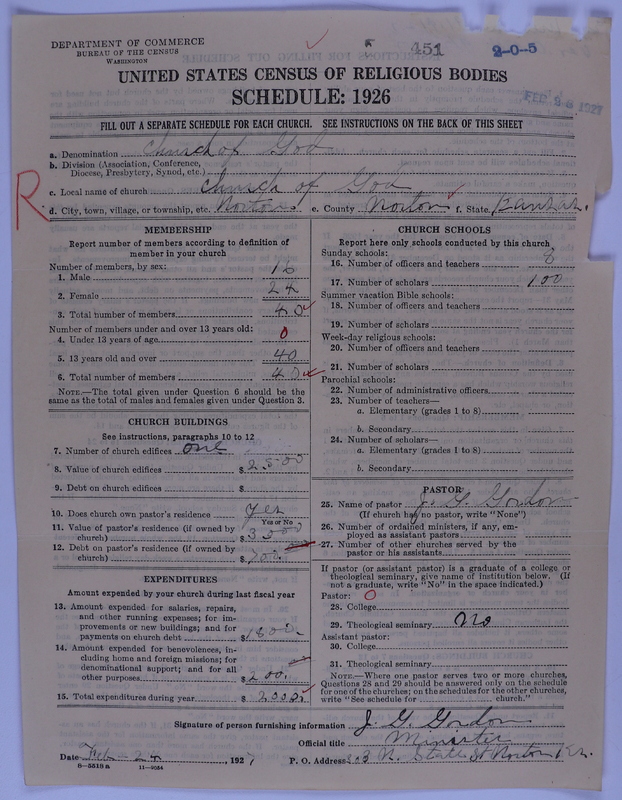 DEPARTMENT OF COMMERCE
BUREAU OF THE CENSUS
WASHINGTON
451
2-0-5
UNITED STATES CENSUS OF RELIGIOUS BODIES
SCHEDULE: 1926
FEB 1927
FILL OUT A SEPARATE SCHEDULE FOR EACH CHURCH. SEE INSTRUCTIONS ON THE BACK OF THIS SHEET
R
a. Denomination Church of God
b. Division (Association, Conference, Diocese, Presbytery, Synod, etc.)
c. Local name of church Church of God
d. City, town, village, or township, etc. Norton e. County Norton f. State Kansas.
MEMBERSHIP
Report number of members according to definition of
member in your church
Number of members, by sex:
1. Male 16
2. Female 24
3. Total number of members 40
Number of members under and over 13 years old:
4. Under 13 years of age 0
5. 13 years old and over 40
6. Total number of members 40
NOTE.—The total given under Question 6 should be
same as the total of males and females given under Question 3.
CHURCH BUILDINGS
See instructions, paragraphs 10 to 12
7. Number of church edifices one
8. Value of church edifices $ 2500
9. Debt on church edifices $
10. Does church own pastor's residence Yes
Yes or No
11. Value of pastor's residence (if owned by
church) $ 3000
12. Debt on pastor's residence (if owned by
church) $
EXPENDITURES
Amount expended by your church during last fiscal year
13. Amount expended for salaries, repairs,
and other running expenses; for im-
provements or new buildings; and for
payments on church debt $ 1800.
14. Amount expended for benevolences, in-
cluding home and foreign missions; for
denominational support; and for all
other purposes $ 200.
15. Total expenditures during year $ 2000.
CHURCH SCHOOLS
Report here only schools conducted by this church
Sunday schools:
16. Number of officers and teachers 8
17. Number of scholars 100
Summer vacation Bible schools:
18. Number of officers and teachers
19. Number of scholars
Week-day religious schools:
20. Number of officers and teachers
21. Number of scholars
Parochial schools:
22. Number of administrative officers
23. Number of teachers—
a. Elementary (grades 1 to 8)
b. Secondary
24. Number of scholars—
a. Elementary (grades 1 to 8)
b. Secondary
PASTOR
25. Name of pastor J. G. Gordon
(If church has no pastor, write "None")
26. Number of ordained ministers, if any, em-
ployed as assistant pastors
27. Number of other churches served by the
pastor or his assistants
If pastor (or assistant pastor) is a graduate of a college or
theological seminary, give name of institution below. (If
not a graduate, write "No" in the space indicated.)
Pastor: 0
28. College
29. Theological seminary No
Assistant pastor:
30. College
31. Theological seminary
NOTE.—Where one pastor serves two or more churches,
Questions 28 and 29 should be answered only on the schedule
for one of the churches; on the schedules for the other churches,
write "See schedule for church."
Signature of person furnishing information J. G. Gordon
Official title Minister
Date Feb - 24, 1927 P. O. Address 203 N. State St Norton Kn.
8—5518 a 11—9054